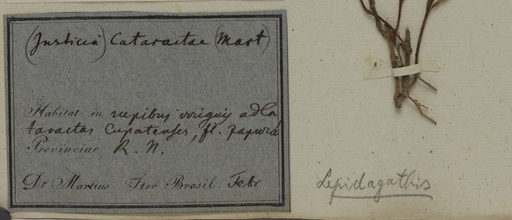 (Justicia) Cataractae (Mart)
Habitat in rupibus irriguis ad Ca
taractas Cupatenses, fl. Japurá
Provinciae R. N.
Dr Martius Iter Brasil. Febr
Lepidagathis